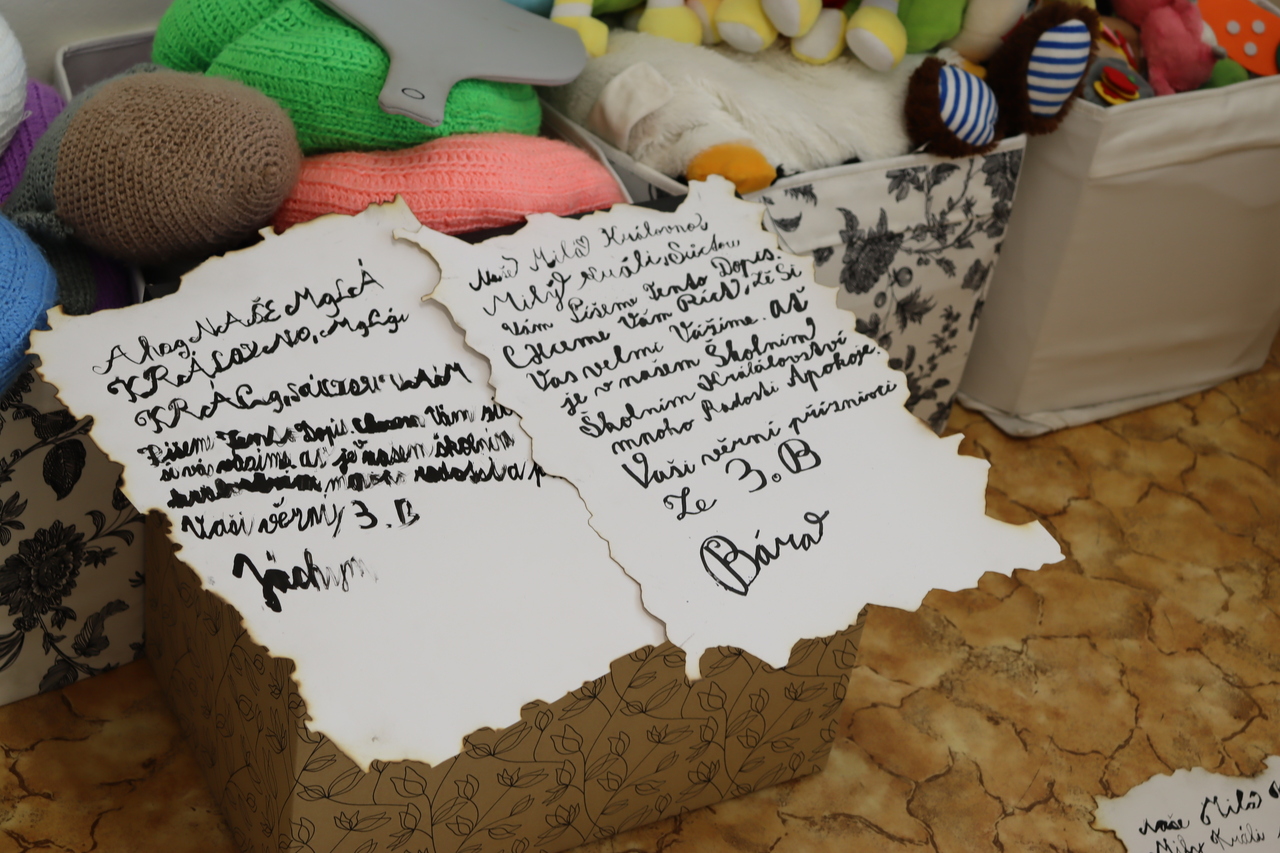 Ahoj NAŠE MILÁ
KRÁLOVNO, Milý
KRÁLi, VÁM
Píšeme Tento Dopis Chcem Vám
si vás vážíme ať je našem školním
radosti a p
Vaši věrní 3. B
Jáchym
Naše Milá Královno,
Milý Králi, 
Vám Píšeme Tento Dopis.
Chceme Vám Říct, že Si
Vás velmi Vážíme. ať
je v našem Školním,
Školním Králálovství
mnoho Radosti Apokoje.
Vaši věrní příznivci
Ze 3. B
Bára
Naše Milá
Milý Králi